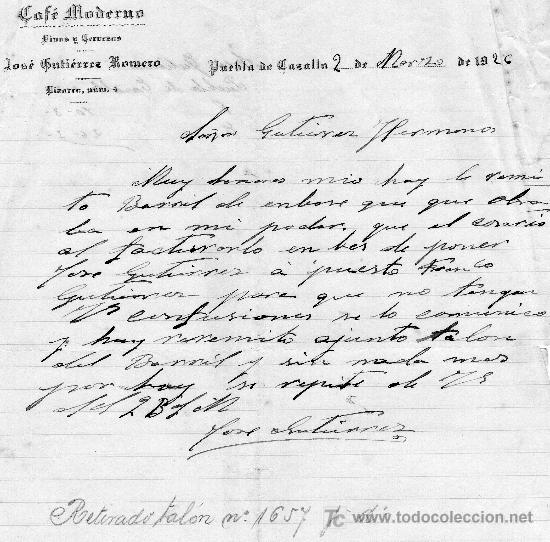 Café Moderno
Vinos y Cervezas
José Gutiérrez Romero
Lizarra, núm. 4
Puebla de Cazalla 2 de Marzo de 1926
Señores Gutierrez Hermanos
Muy señores mio hoy le remi
to Barril de enbase que que obra
ba en mi poder, que el cosario
al facturarlo en bes de poner
Jose Gutiérrez á puesto Franco
Gutierrez para que no tengan
VS confusiones se lo comunico
y hay remito ajunto talon
del Barril y sin nada mas
por hoy se repite de VS
Jose Gutierrez
Retirado talón nº 1657
www.todocoleccion.net